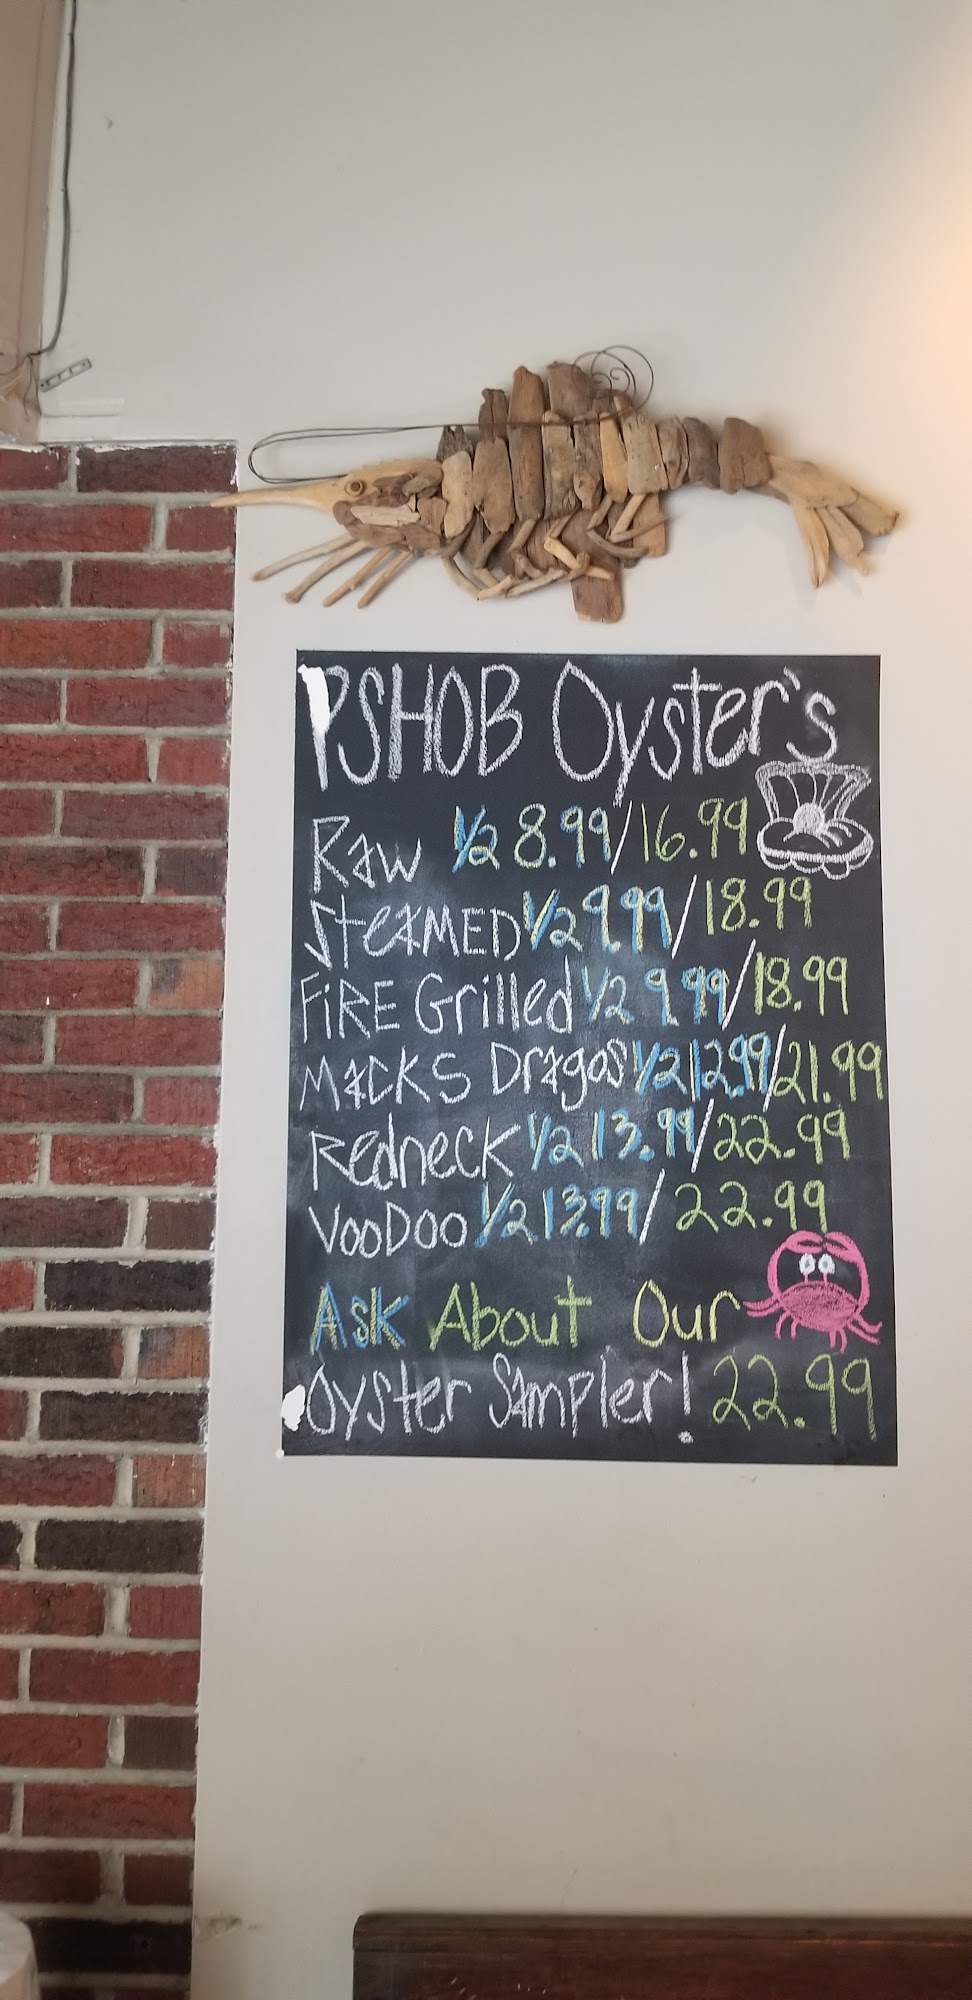 PSHOB Oyster's
Raw 1/2 8.99/16.99
Steamed 1/2 9.99/18.99
Fire Grilled 1/2 9.99/18.99
Macks Dragos 1/2 12.99/21.99
Redneck 1/2 13.99/22.99
Voodoo 1/2 13.99/22.99
Ask About Our
Oyster Sampler! 22.99